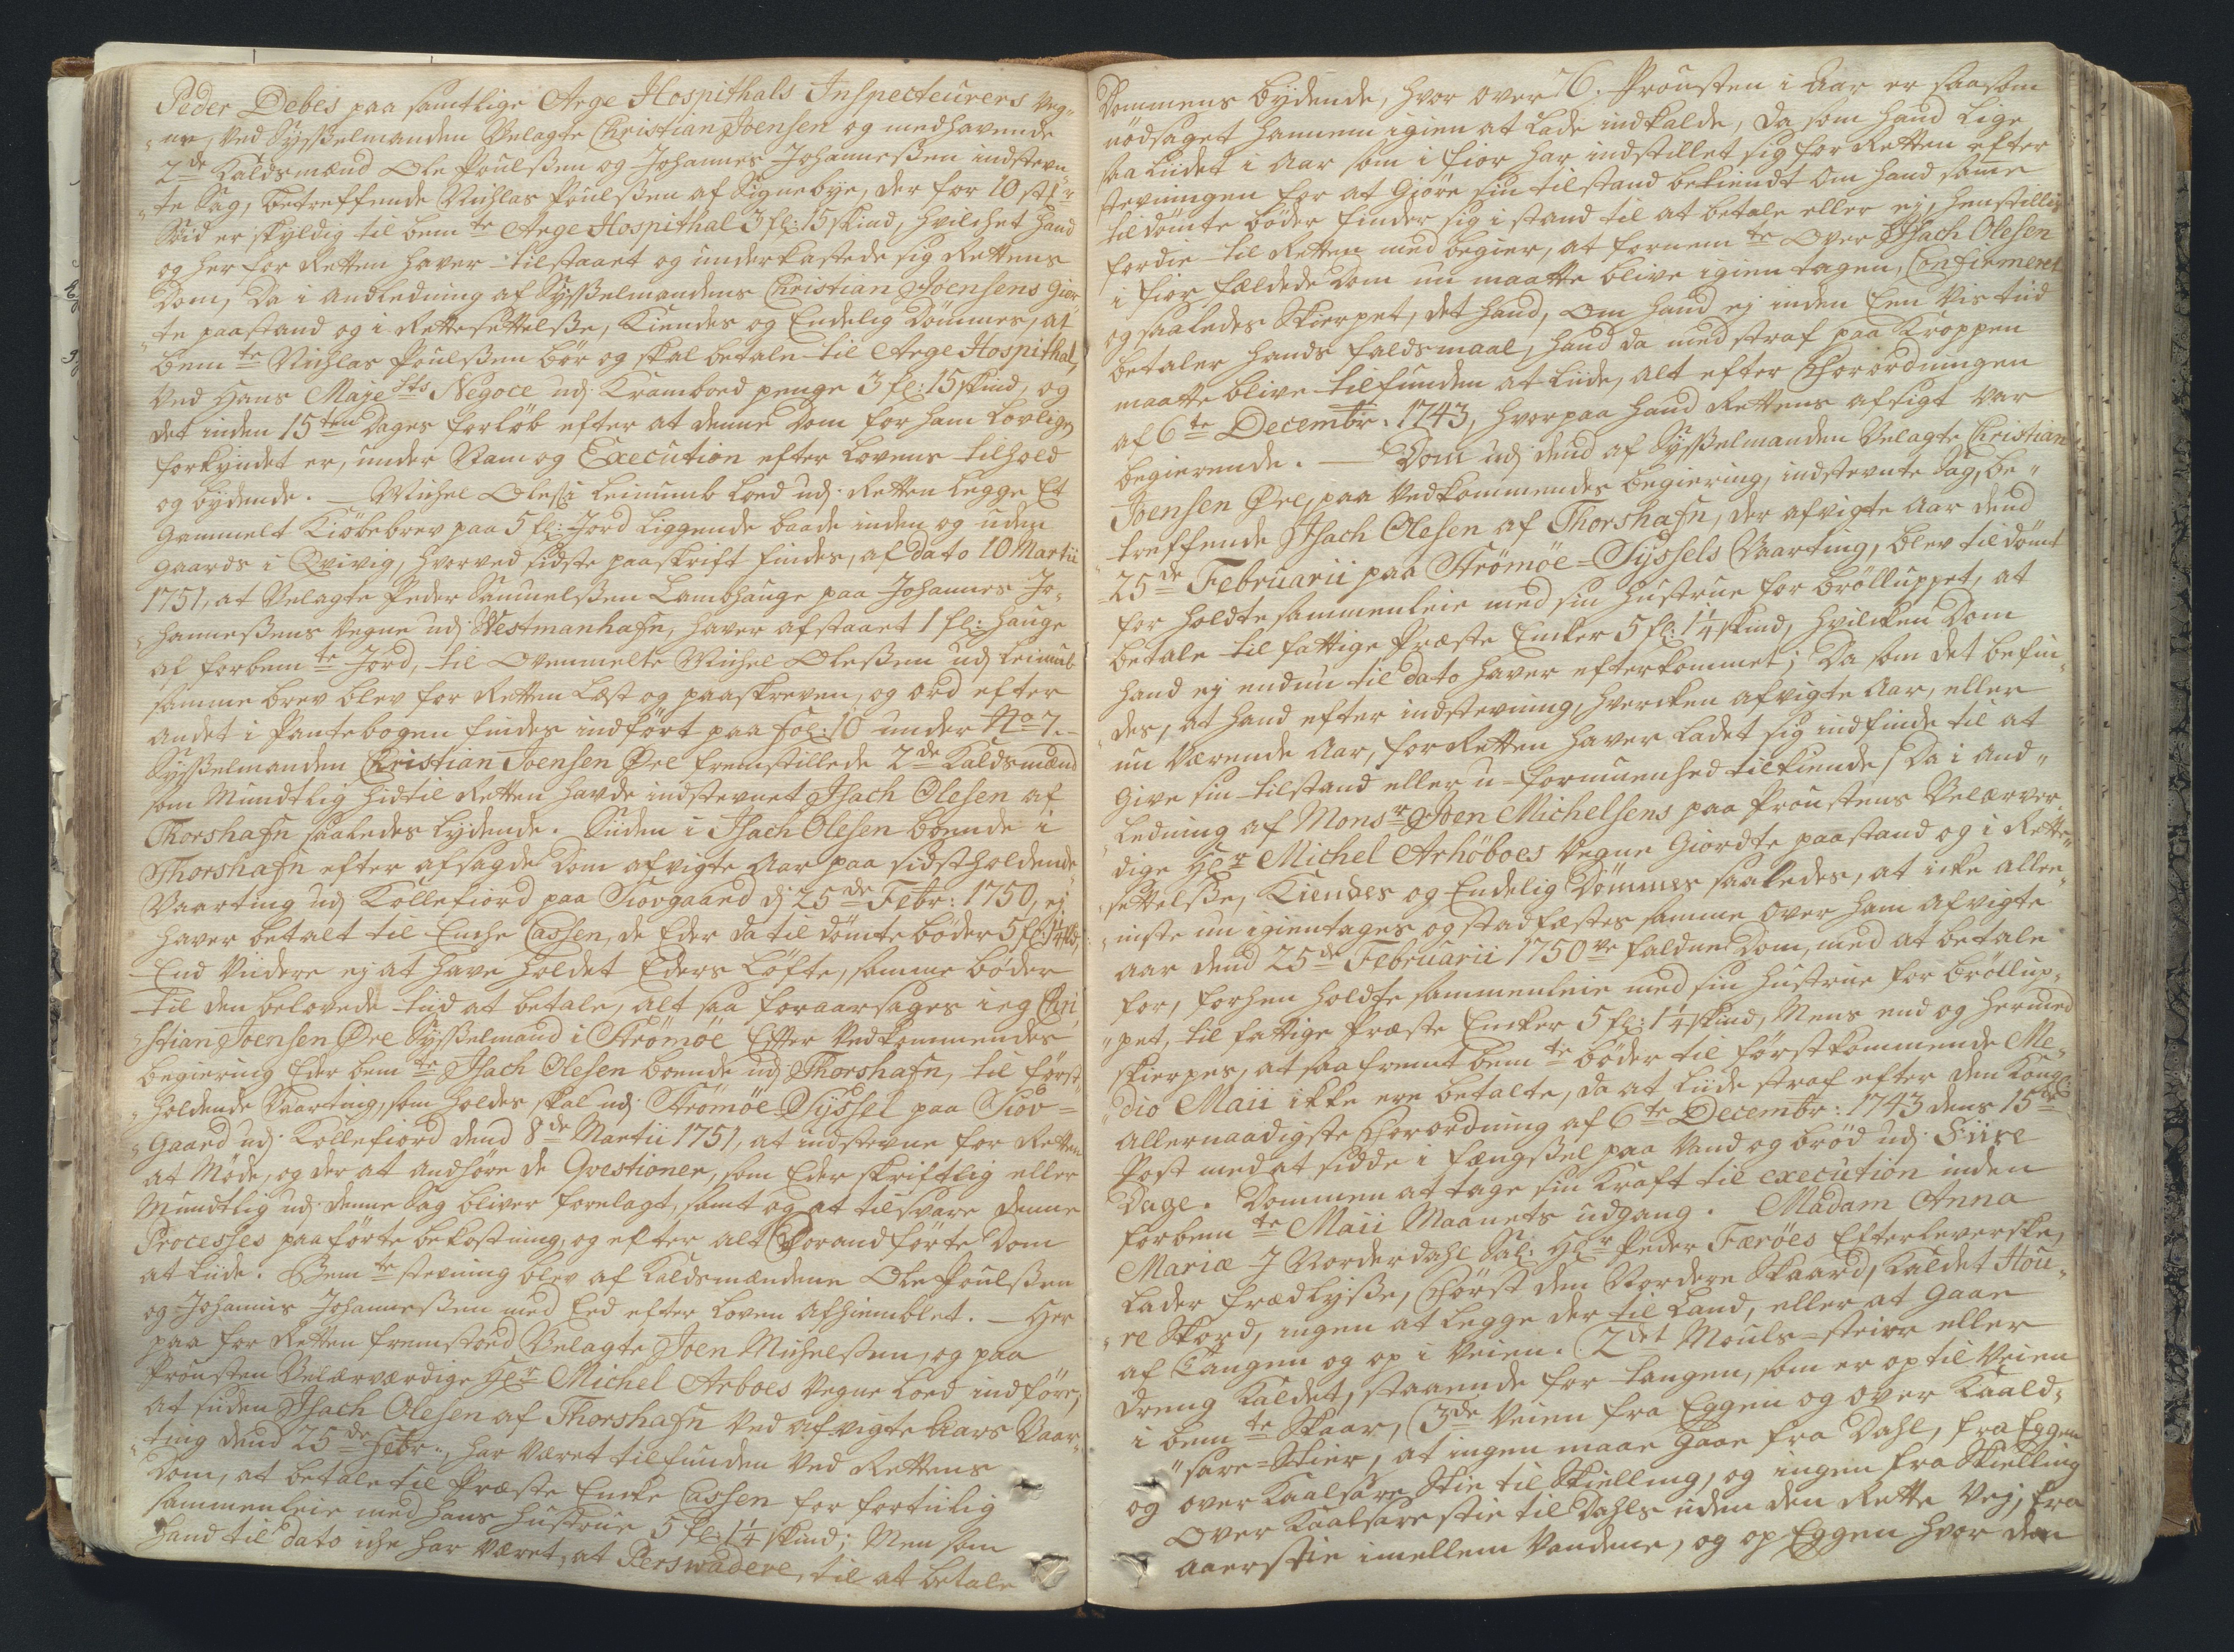 Peder Debes paa samtlige Arge Hospithals Inspecteurers veg„
„ne, ved Sysselmanden Velagte Christian Joensen og medhavende
2de Kaldsmænd Ole Poulssen og Johannes Johannessen indstevn„
„te Sag, betreffende Nichlas Poulssen af Signebye, der for 10 st:
er skyldig til bemte Arge Hospithal 3 fl: 15 skind, hvilchet hand
og her for Retten haver tilstaaet og underkastede sig Rettens
Dom, Da i anledning af Sysselmandens Christian Joensens gior„
„te paastand og i Rettesettelsse, Kiendes og Endelig Dømmes, at
bemte Nichlas Poulssen bør og skal betale til Arge Hospithal,
ved Hans Majests Negoce udj Kramboed penge 3 fl: 15 skind, og
det inden 15ten Dages forløb efter at denne Dom for ham lovlig
forkyndet er, under Nam og Execution efter Lovens tilhold
og bydende. — Michel Olesen Leinumb loed udj Retten legge Et
gammelt Kiøbebrev paa 5 fl: Jord liggende baade inden og uden
gaards i Qvivig, hvorved sidste paaskrift findes, af dato 10 Martii
1751, at Velagte Peder Samuelssen Lambhauge paa Johannes Jo„
„hannessens vegne udj Westmanhafn, haver afstaaet 1 fl: hauge
af forbemte Jord, til Ovenmelte Michel Olessen udj Leinumb
samme brev blev for Retten Læst og paaskreven, og ord efter
andet i Pantebogen findes indført paa Fol: 10 under No 7. –
Sysselmanden Christian Joensen Øre fremstillede 2de Kaldsmænd
som Mundtlig hidtil Retten havde indstevnet Jsach Olesen af
Thorshafn saaledes lydende. Siden i Jsach Olesen boende i
Thorshafn efter afsagde Dom afvigte Aar paa sidstholdende
Vaarting udj Kollefiord paa Siovgaard d: 25de Febr: 1750, ej
haver betalt til Enche Cassen, de Eder da til dømte bøder 5 fl: 1¼ skd:
End viidere ej at have holdet Eders Løfte, samme bøder
til den belovede tiid at betale, alt saa foraarsages ieg Chri„
„stian Joensen Øre Sysselmand i Strømøe Efter vedkommendes
begiering Eder bemte Jsach Olesen boende udj Thorshafn, til først„
„holdende Vaarting, som holdes skal udj Strømøe Syssel paa Siov=
„Gaard udj Kollefiord dend 8de Martii 1751, at indstevne for Retten
at Møde, og der at andhøre de Qvestioner, som Eder skriftlig eller
Mundtlig udj denne Sag bliver forelagt, samt og at tilsvare denne
Processes paaførte bekostning, og efter alt foranførte Dom
at liide. Bemte stevning blev af Kaldsmændene Ole Poulssen
og Johannis Johannessen med Eed efter Loven afhiemblet. — Her
paa for Retten fremstoed Velagte Joen Michelssen, og paa
Prousten Velærværdige Hr Michel Arboes vegne loed indføre,
at siden Jsach Olesen af Thorshafn ved afvigte Aars Vaar„
„ting dend 25de Febr:, har været tilfunden ved Rettens
Dom, at betale til Præste Encke Cassen for fortiilig
sammenleie med hans Hustrue 5 fl: 1¼ skind; Men som
hand til dato iche har været, at Perswadere, til at betale
Dommens bydende, hvor over Prousten i Aar er saasom
nødsaget hannem igien at Lade indkalde, da som hand Lige
saa liidet i Aar som i fior har indstillet sig for Retten efter
stevningen for at giøre sin tilstand bekiendt om hand samme
tildømte bøder finder sig i stand til at betale eller ej, henstillis
fordie til Retten med begier, at fornemte Over Jsach Olesen
i fior fældede Dom nu maatte blive igientagen, Confirmeret
og saaledes skierpet, det hand, om hand ej inden Een vis tiid
betaler hands faldsmaal, hand da med straf paa Kroppen
maatte blive tilfunden at Liide, alt efter Forordningen
af 6te Decembr: 1743, hvorpaa hand Rettens afsigt var
begierende. — Dom udj dend af Sysselmanden Velagte Christian
Joensen Øre, paa vedkommendes begiering, indstevnte Sag, be„
„treffende Jsach Olesen af Thorshafn, der afvigte Aar dend
25de Februarii paa Strømøe=Syssels Vaarting, blev tildømt
for holdte sammenleie med sin Hustrue for brølluppet, at
betale til fattige Præste Encker 5 fl: 1¼ skind, hvilcken Dom
hand ej endnu til dato haver efterkommet; Da som det befin„
„des, at hand efter indstevning, hvercken afvigte Aar, eller
nu værende Aar, for Retten haver Ladet sig indfinde til at
give sin tilstand eller u-formuenhed tilkiende, Da i And„
„Ledning af Monsr Joen Michelsens paa Proustens Velærver„
„dige Hr Michel Arhøboes vegne giordte paastand og i Rette„
„settelsse, Kiendes og Endelig Dømmes saaledes, at icke allen„
„niste nu igientages og stadfæstes samme over ham afvigte
Aar dend 25de Februarii 1750 faldne Dom, med at betale
for, forhen holdte sammenleie med sin Hustrue for brøllup„
„pet, til fattige Præste Encker 5 fl: 1¼ skind, Mens end og hermed
skierpes, at saafremt bemte bøder til førstkommende Me„
„dio Maii ikke ere betalte, da at liide straf efter den Kongl:
allernaadigste Forordning af 6te Decembr: 1743 dens 15de
Post med at sidde i fængssel paa Vand og brød udj Fiire
Dage. Dommen at tage sin Kraft til execution inden
forbemte Maii Maanets udgang. Madam Anna
Maria J Norderdahl Sal: Hr Peder Færøes Efterleverske,
Lader fredlysse, Først den Nordere Skaard, Kaldet Hou„
„re Skord, ingen at legge der til Land, eller at gaae
af Tangen og op i Veien. 2det Mouls=steire eller
dreng Kaldet, staaende for tangen, som er op til Veien
i bemte Skaar, 3de Veien fra Eggen og over Kaald„
„sare=Stier, at ingen maae gaae fra Dahl, fra Eggen
og over Kaalsare Stie til Skielling, og ingen fra Skielling
Over Kaalsare stie til Dahls uden den Rette Vej, fra
aaerstie imellem Vandene, og op Eggen hvor den